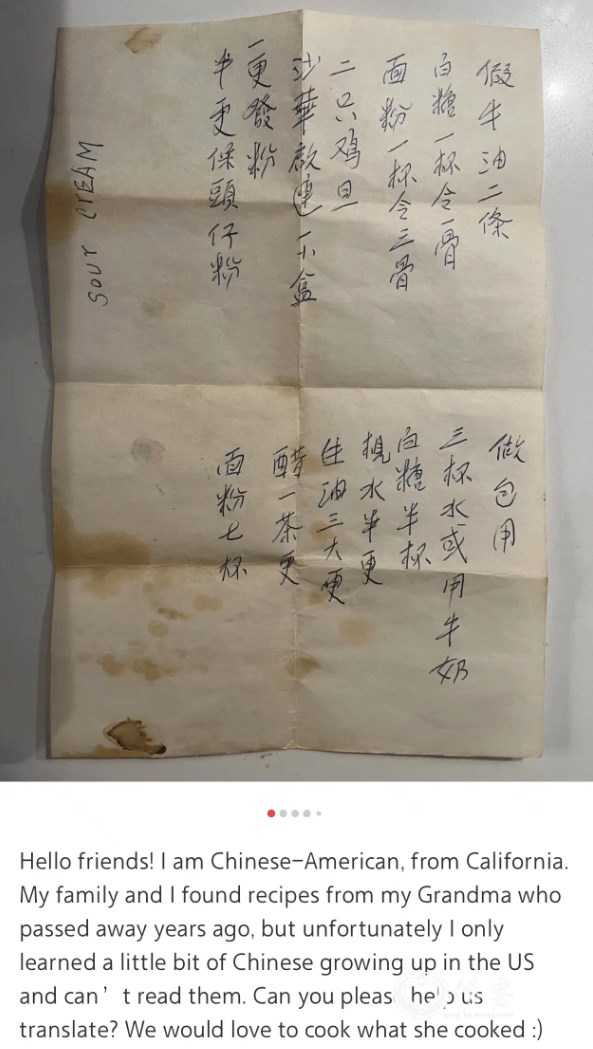 假牛油二條
白糖一杯令一骨
面粉一杯令三骨
二只鸡旦
沙華啟連一小盒
一更發粉
半更保頭仔粉
sour cREAM
做包用
三杯水或用牛奶
白糖半杯
梘水半更
生油三大更
醋一茶更
面粉七杯
Hello friends! I am Chinese-American, from California.
My family and I found recipes from my Grandma who
passed away years ago, but unfortunately I only
learned a little bit of Chinese growing up in the US
and can't read them. Can you please help us
translate? We would love to cook what she cooked :)